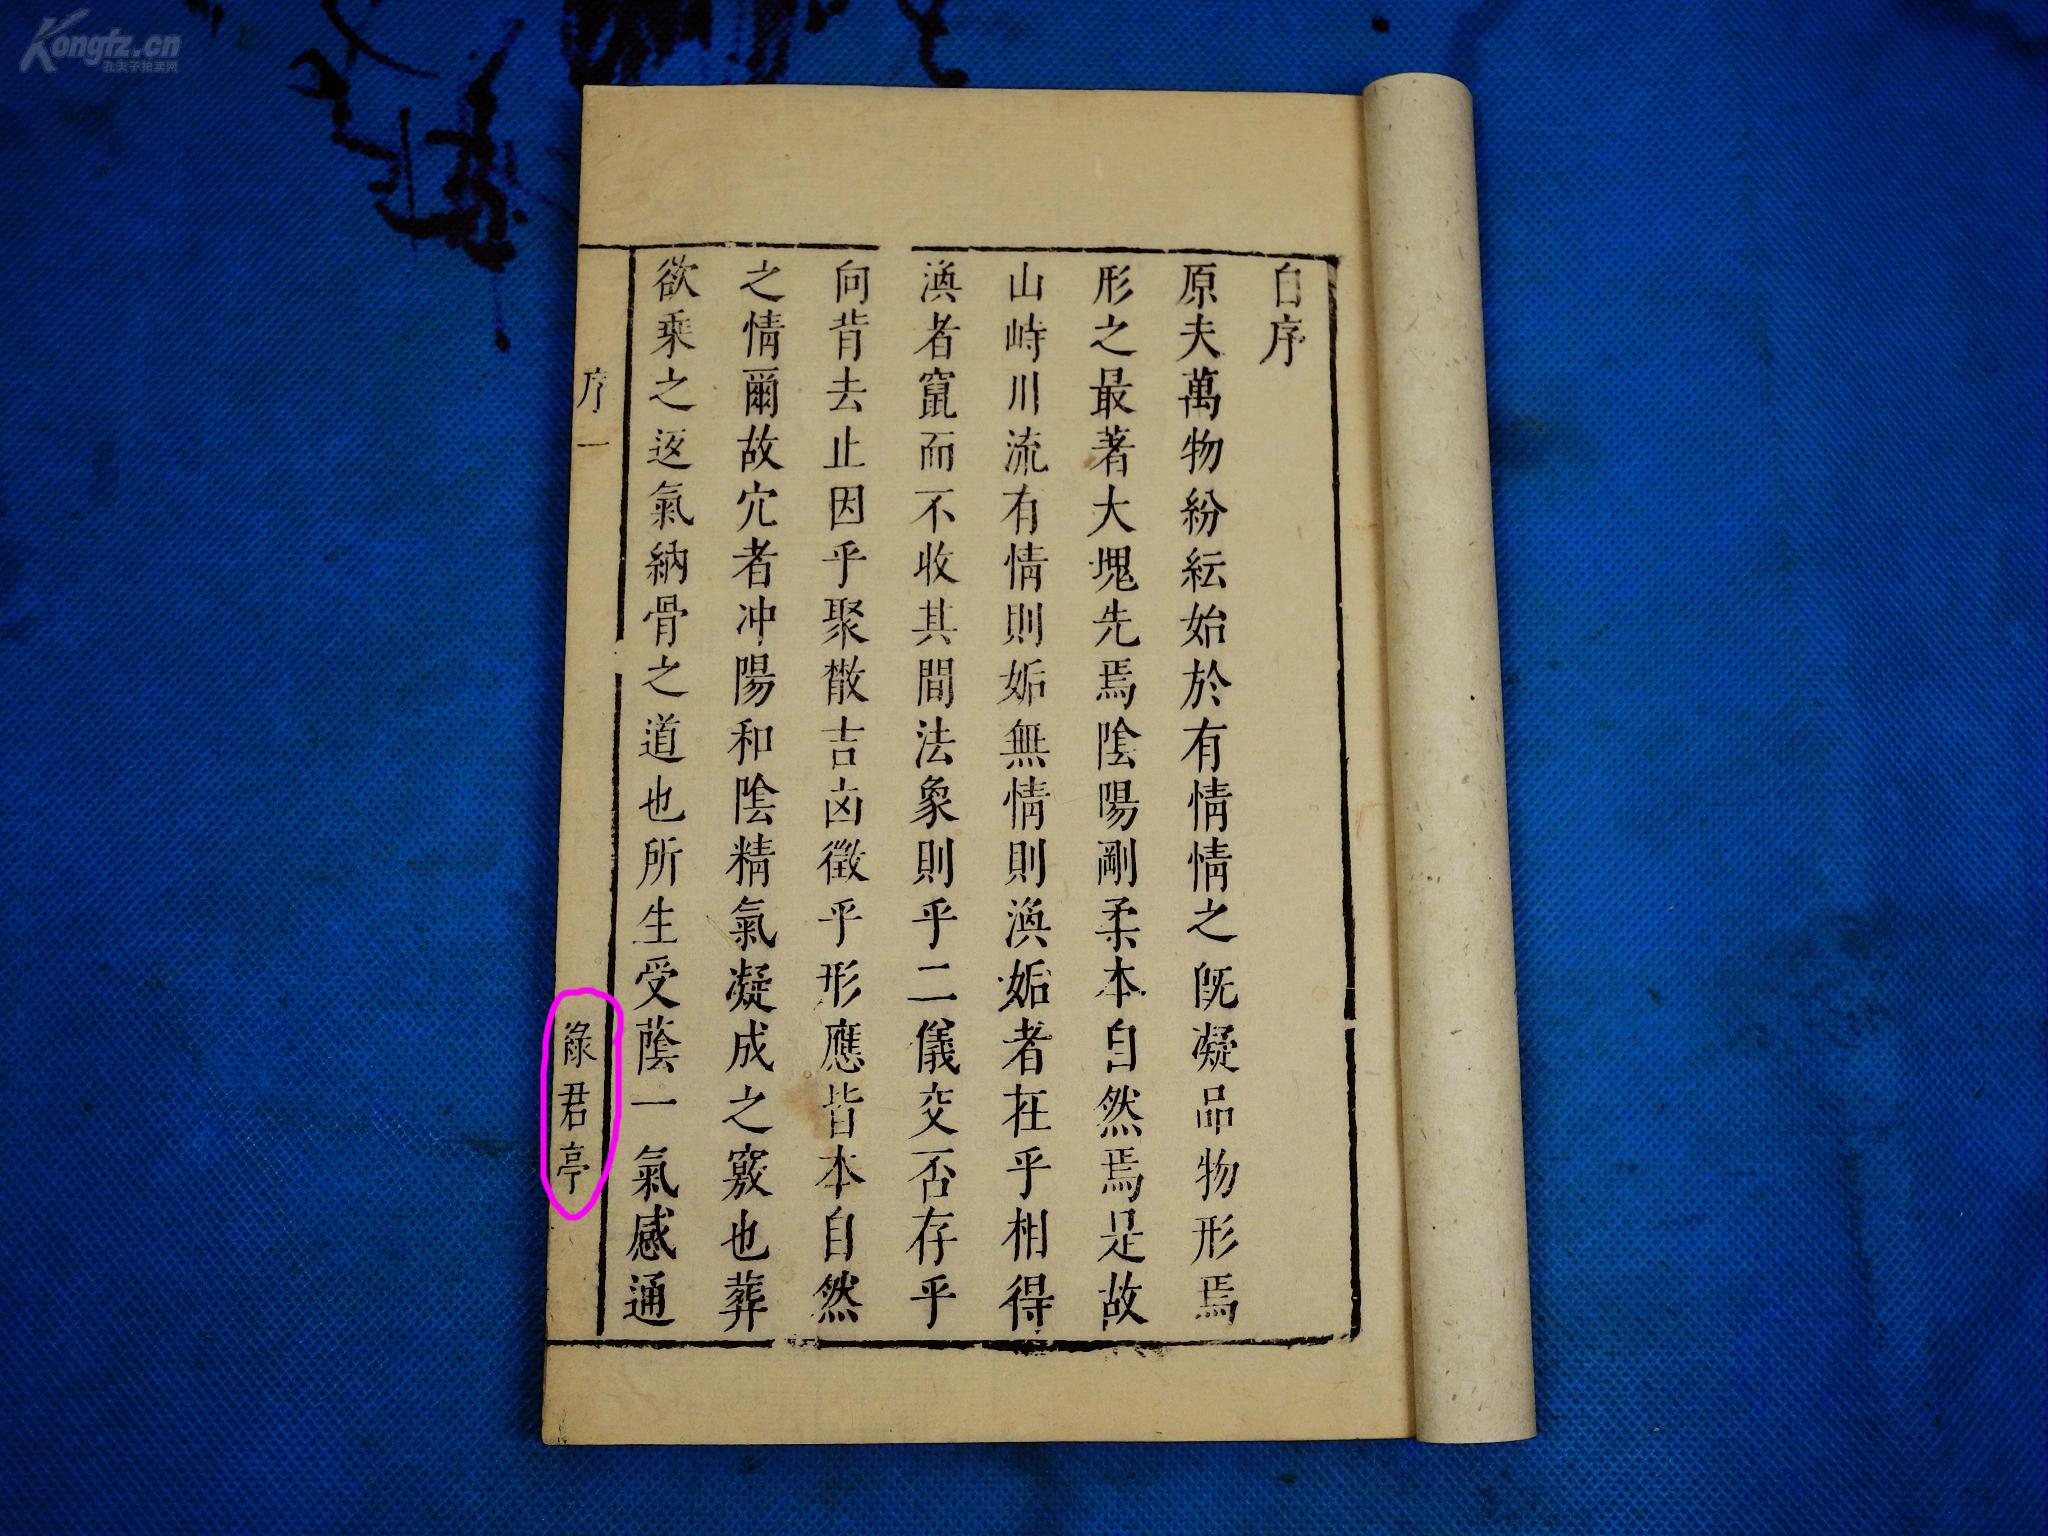 自序
原夫萬物紛紜始於有情情之旣凝品物形焉
形之最著大塊先焉陰陽剛柔本自然焉是故
山峙川流有情則姤無情則渙姤者在乎相得
渙者竄而不收其間法象則乎二儀交否存乎
向背去止因乎聚散吉凶徵乎形應皆本自然
之情爾故穴者冲陽和陰精氣凝成之竅也葬
欲乘之返氣納骨之道也所生受蔭一氣感通
序 一
綠君亭
Kongfz.cn
孔夫子拍卖网